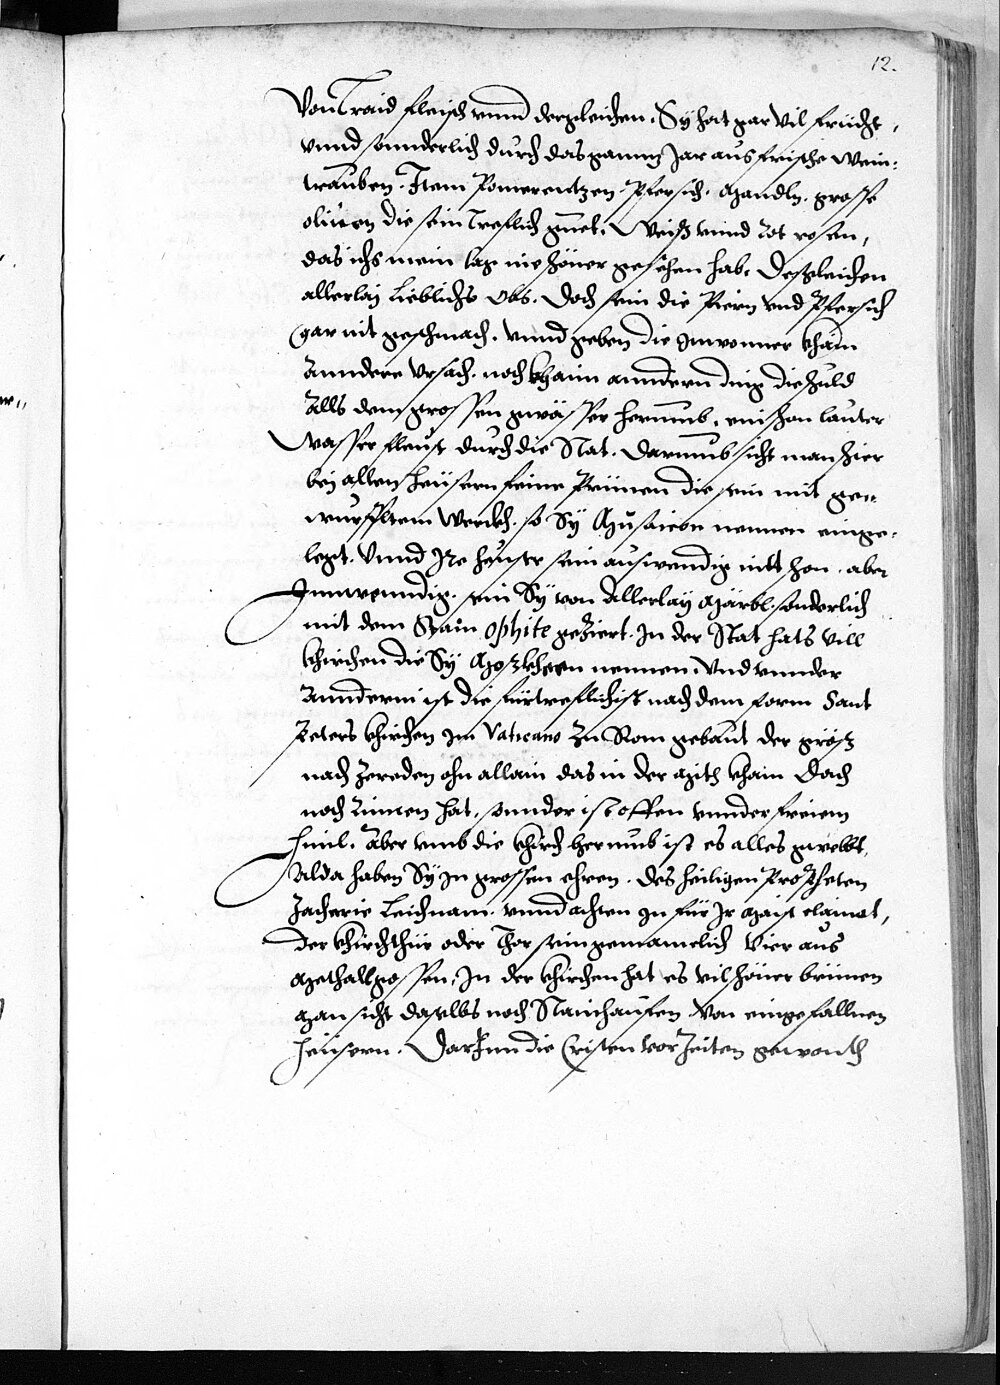 12.
Von Traid fleisch vnnd dergleichen. Sy hat gar vil frücht,
vnnd sonnderlich durch das gannz Jar aus frische Wein:
trauben. Item Pomerentzen. Pfersich. Mandln. grosse
oliuen die sein treflich guet. Weiß vnnd Rot rosen,
das ichs mein tag nie schöner gesehen hab. Desgleichen
allerlaÿ lieblichs Obs. Doch sein die Piern vnd Pfersich
gar nit geschmach. vnnd geben die Inwonner khain
Anndere vrsach. noch khaim anndern ding die schuld
Alls dem grossen gwässer herumb. ein schon lauter
Wasser fleust durch die Stat. Darumb sicht man hier
beÿ allen heüsern feine Prünen die sein mit ge„
würffltem Werckh. so Sÿ Musaicon nennen einge:
legt. Vnnd Ire heuser sein auswendig nit schon. aber
Innwenndig. sein Sÿ von Allerlaÿ Märbl. sonderlich
mit dem Stain Ophite geziert. In der Stat hats vill
khirchen die Sÿ Moschkheen nennen. Vnd vnnder
Anndern ist die fürtreflichist nach dem form Sant
Peters khirchen Im Vaticano zu Rom gebaut der größ
nach zereden ohn allain das in der mith khain Dach
noch Zinnen hat. sonnder ist offen vnnder freiem
himl. Aber vmb die khirch herumb ist es alles gwelbt.
Alda haben Sÿ In grossen ehren. des heiligen Propheten
Zacherie Leichnam. vnnd achten In für Ir maist clainat,
Der khirchthür oder Thor sein gemainelich Vier aus
Methall gossen. In der khirchen hat es vil schöner brünen
Man sicht daselbs noch Stainhaufen von eingefallnen
heüsern. Darinn die Cristen vor Zeiten gewonth